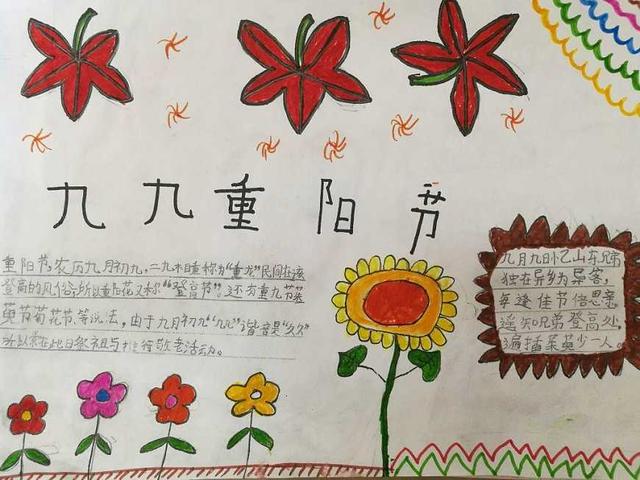 九九重阳节
重阳节,农历九月初九,二九相重称为"重九"民间在该
登高的风俗,所以重阳节又称"登高节"。还有重九节茱
萸节菊花节等说法,由于九月初九"九九"谐音是"久久"
所以常在此日祭祖与推行敬老活动。
九月九日忆山东兄弟
独在异乡为异客,
每逢佳节倍思亲
遥知兄弟登高处,
遍插茱萸少一人。